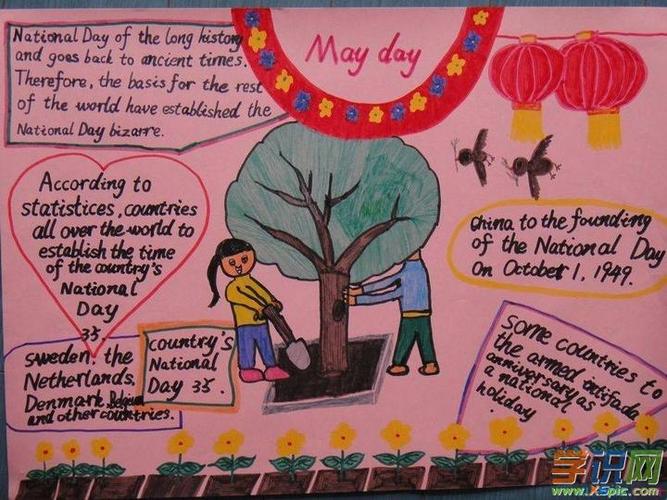 May day
National Day of the long history
and goes back to ancient times.
Therefore, the basis for the rest
of the world have established the
National Day bizarre.
According to
statistices, countries
all over the world to
establish the time
of the country's
National
Day
35.
Sweden, the
Netherlands,
Denmark, Belgium
and other countries.
country's
National
Day 35.
China to the founding
of the National Day
On October 1, 1949.
Some countries to
the armed intifada
anniversary as
a national
holiday
学识网
www.XSpic.com